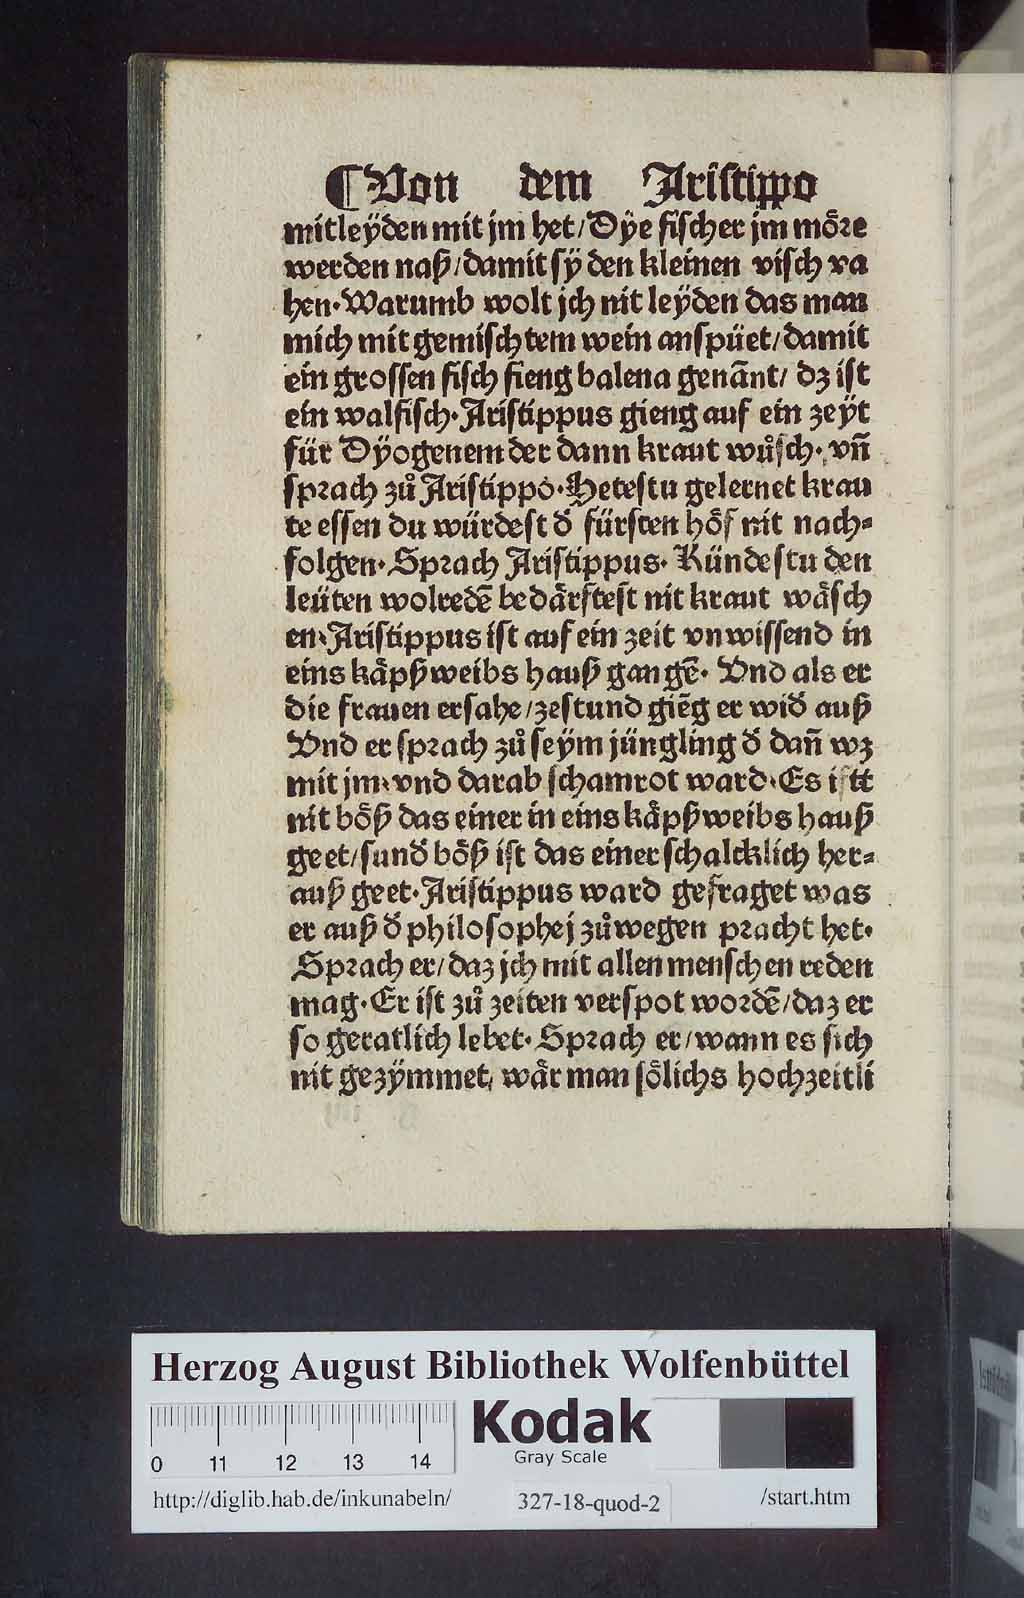 ¶Von dem Aristippo
mitleÿden mit jm het/ Dÿe fischer jm moͤre
werden naß/ damit sÿ den kleinen visch va
hen. Warumb wolt jch nit leÿden das man
mich mit gemischtem wein anspüet/ damit
ein grossen fisch fieng balena genãnt/ dz ist
ein walfisch. Aristippus gieng auf ein zeÿt
für Dÿogenem der dann kraut wuͦsch. vñ
sprach zuͦ Aristippo. Hetestu gelernet krau
te essen du würdest d̕ fürsten hoͤf nit nach⸗
folgen. Sprach Aristippus. Kündestu den
leüten wolredẽ bedaͤrftest nit kraut waͤsch
en. Aristippus ist auf ein zeit vnwissend in
eins kaͤpßweibs hauß gangẽ. Vnd als er
die frauen ersahe/ zestund giẽg er wid̕ auß
Vnd er sprach zuͦ seÿm jüngling d̕ dañ wz
mit jm. vnd darab schamrot ward. Es istt
nit boͤß das einer in eins kaͤpßweibs hauß
geet/ sund̕ boͤß ist das einer schalcklich her⸗
auß geet. Aristippus ward gefraget was
er auß d̕ philosophej zuͦwegen pracht het.
Sprach er/ daz jch mit allen menschen reden
mag. Er ist zuͦ zeiten verspot wordẽ/ daz er
so geratlich lebet. Sprach er/ wann es sich
nit gezÿmmet, waͤr man soͤlichs hochzeitli
Herzog August Bibliothek Wolfenbüttel
Kodak
Gray Scale
0 11 12 13 14
http://diglib.hab.de/inkunabeln/ 327-18-quod-2 /start.htm